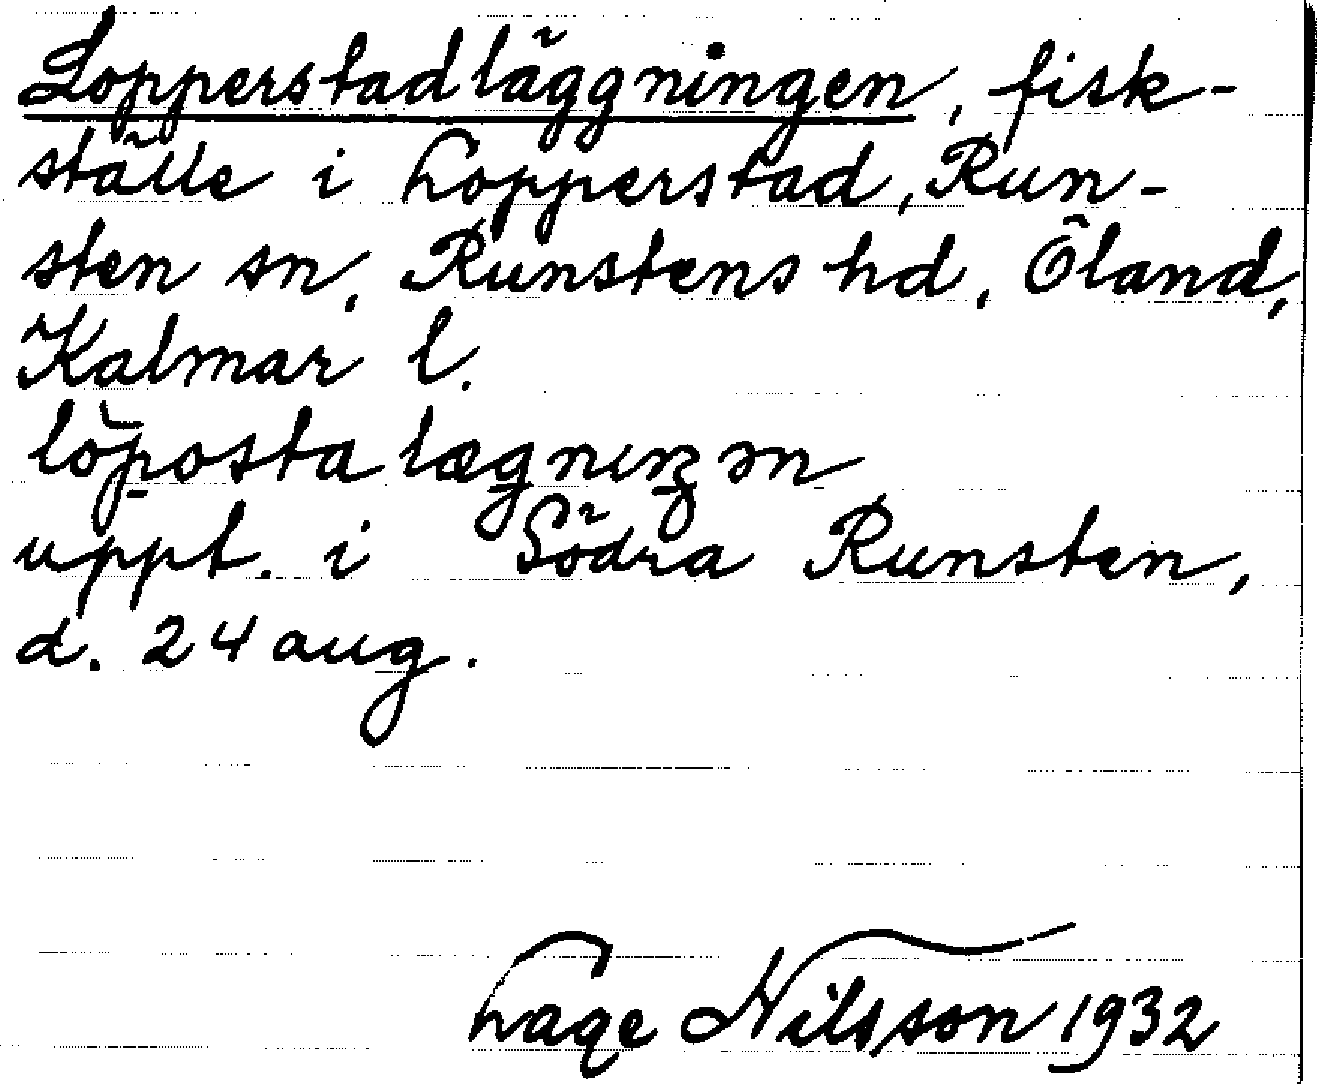 Lopperstadläggningen, fisk-
ställe i Lopperstad, Run-
sten sn, Runstens hd, Öland,
Kalmar l.
löpostalægnıŋən
uppt. i Södra Runsten,
d. 24 aug.
Lage Nilsson 1932